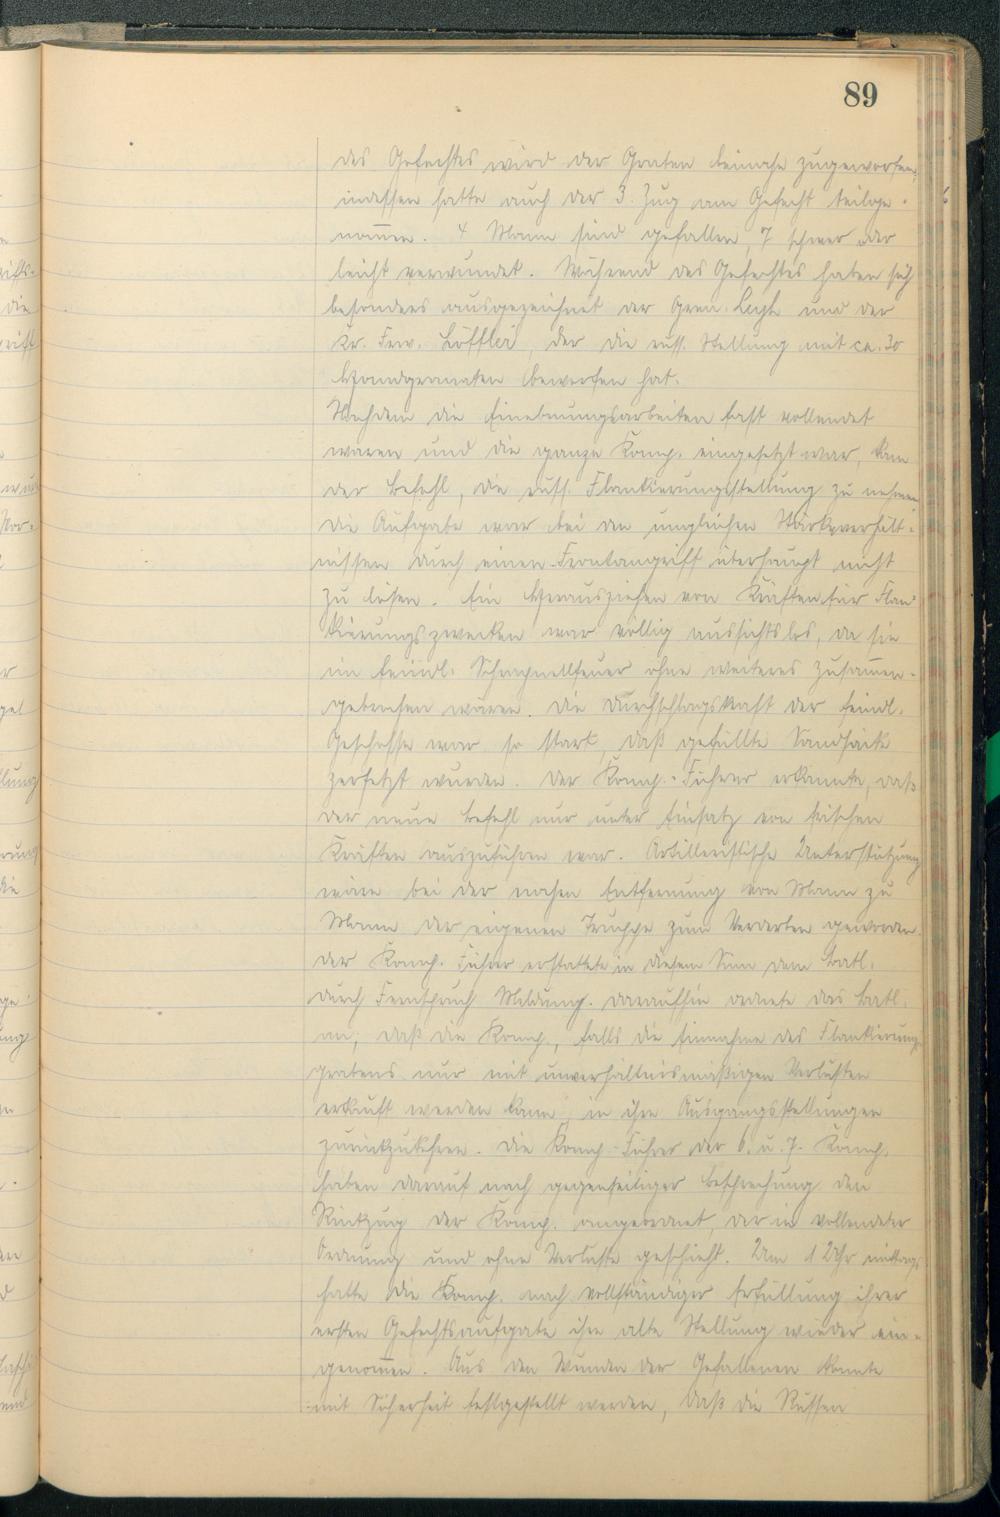 89
des Gefechtes wird der Graben beinahe zugeworfen,
indessen hatte auch der 3. Zug am Gefecht teilge-
nom̅en. 4 Mann sind gefallen, 7 schwer oder
leicht verwundet. Während des Gefechtes haben sich
besonders ausgezeichnet der Gren. und der
Kr. Frw. Löffler, der die russ. Stellung mit ca. 30
Handgranaten beworfen hat.
Nachdem die Einebnungsarbeiten fast vollendet
waren und die ganze Komp. eingesetzt war, kam
der Befehl, die russ. Flankierungsstellung zu nehmen
Die Aufgabe war bei den ungleichen Stärkeverhält-
nissen durch einen Frontangriff überhaupt nicht
zu lösen. Ein Herausziehen von Kräften für Flan-
kierungszwecken war völlig aussichtslos, da sie
im feindl. Schrapnellfeuer ohne weiteres zusam̅en-
gebrochen wären. Die Durchschlagskraft der feindl.
Geschosse war so stark, daß gefüllte Sandsäcke
zerfetzt wurden. Der Komp.-Führer erkannte, daß
der neue Befehl nur unter Einsatz von frischen
Kräften auszuführen war. Artilleristische Unterstützung
wäre bei der nahen Entfernung von Mann zu
Mann der eigenen Truppe zum Verderben geworden.
Der Komp. Führer erstattete in diesem Sinn dem Batl.
durch Fernspruch Meldung. Daraufhin ordnete das Batl.
an, daß die Komp., falls die Einnahme des Flankierungs-
grabens nur mit unverhältnismäßigen Verlusten
erkauft werden kann, in ihre Ausgangsstellungen
zurückzukehren. Die Komp-Führer der 6. u. 7. Komp.
haben darauf nach gegenseitiger Besprechung den
Rückzug der Komp. angeordnet, der in vollendeter
Ordnung und ohne Verluste geschieht. Um 12 Uhr mittags
hatte die Komp. nach vollständiger Erfüllung ihrer
ersten Gefechtsaufgabe ihre alte Stellung wieder ein-
genom̅en. Aus den Wunden der Gefallenen konnte
mit Sicherheit festgestellt werden, daß die Russen